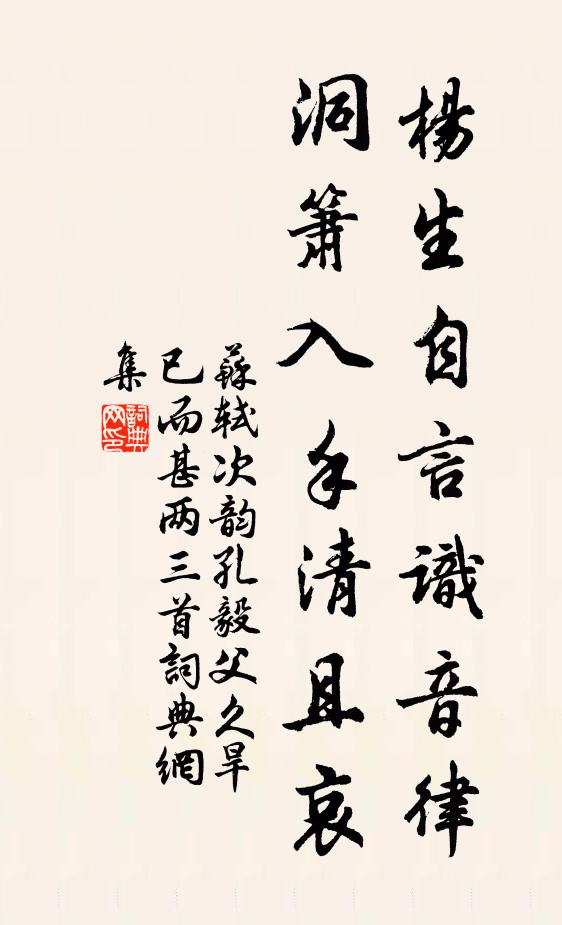 楊生自言識音律
洞簫入手清且哀
蘇軾次韵孔毅父久旱
已而甚两三首詞典網
集
詞典
网印